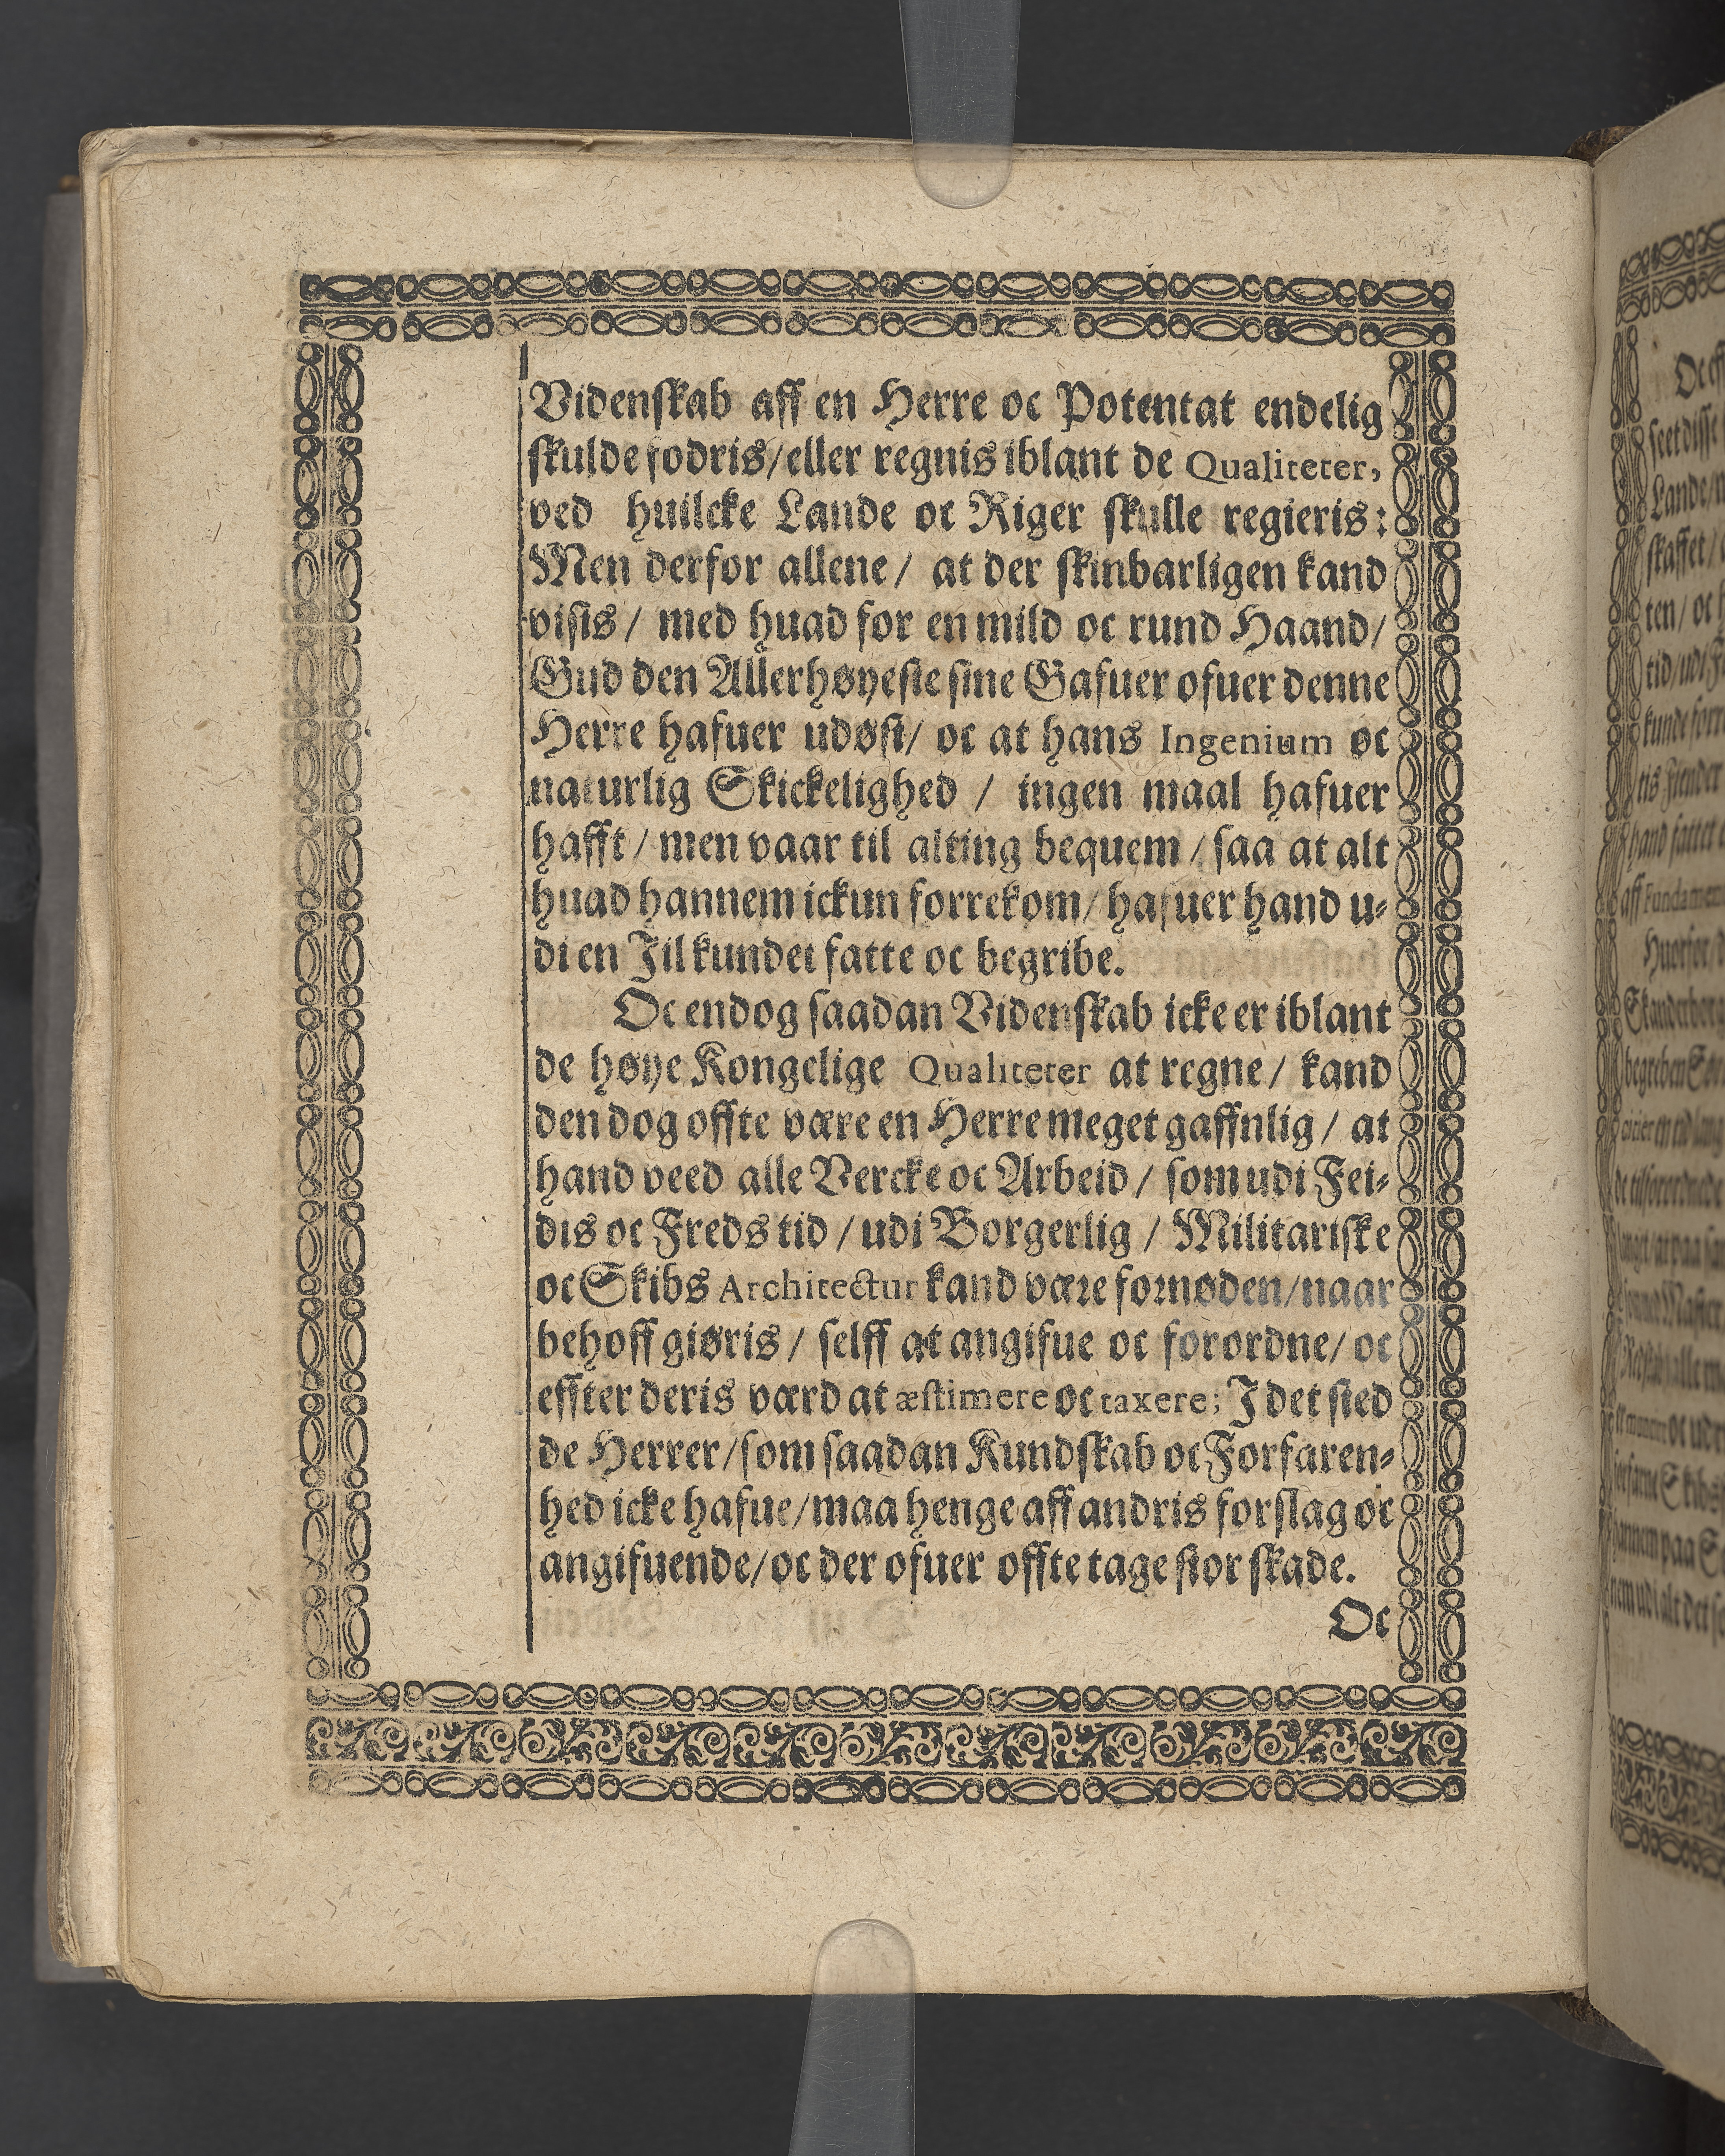 Videnſkab aff en Herre oc Potentat endelig
ſkulde fodris/eller regnis iblant de Qualiteter,
ved huilcke Lande oc Riger ſkulle regieris:
Men derfor allene / at der ſkinbarligen kand
viſis / med huad for en mild oc rund Haand/
Gud den Allerhøyeſte ſine Gafuer ofuer denne
Herre hafuer udøſt/ oc at hans Ingenium oc
naturlig Skickelighed / ingen maal hafuer
hafft / men vaar til alting bequem / ſaa at alt
huad hannem ickun forrekom/ hafuer hand u-
di en Jil kundet fatte oc begribe.
Oc endog ſaadan Videnſkab icke er iblant
de høye Kongelige Qualiteter at regne / kand
den dog offte være en Herre meget gaffnlig / at
hand veed alle Vercke oc Arbeid / ſom udi Fei-
dis oc Freds tid / udi Borgerlig / Militariſke
oc Skibs Architectur kand være fornøden/naar
behoff giøris / ſelff at angifue oc forordne/ oc
effter deris værd at æſtimere oc taxere; J det ſted
de Herrer/ſom ſaadan Kundſkab oc Forfaren-
hed icke hafue/maa henge aff andris forſlag oc
angifuende/oc der ofuer offte tage ſtor ſkade.
Oc